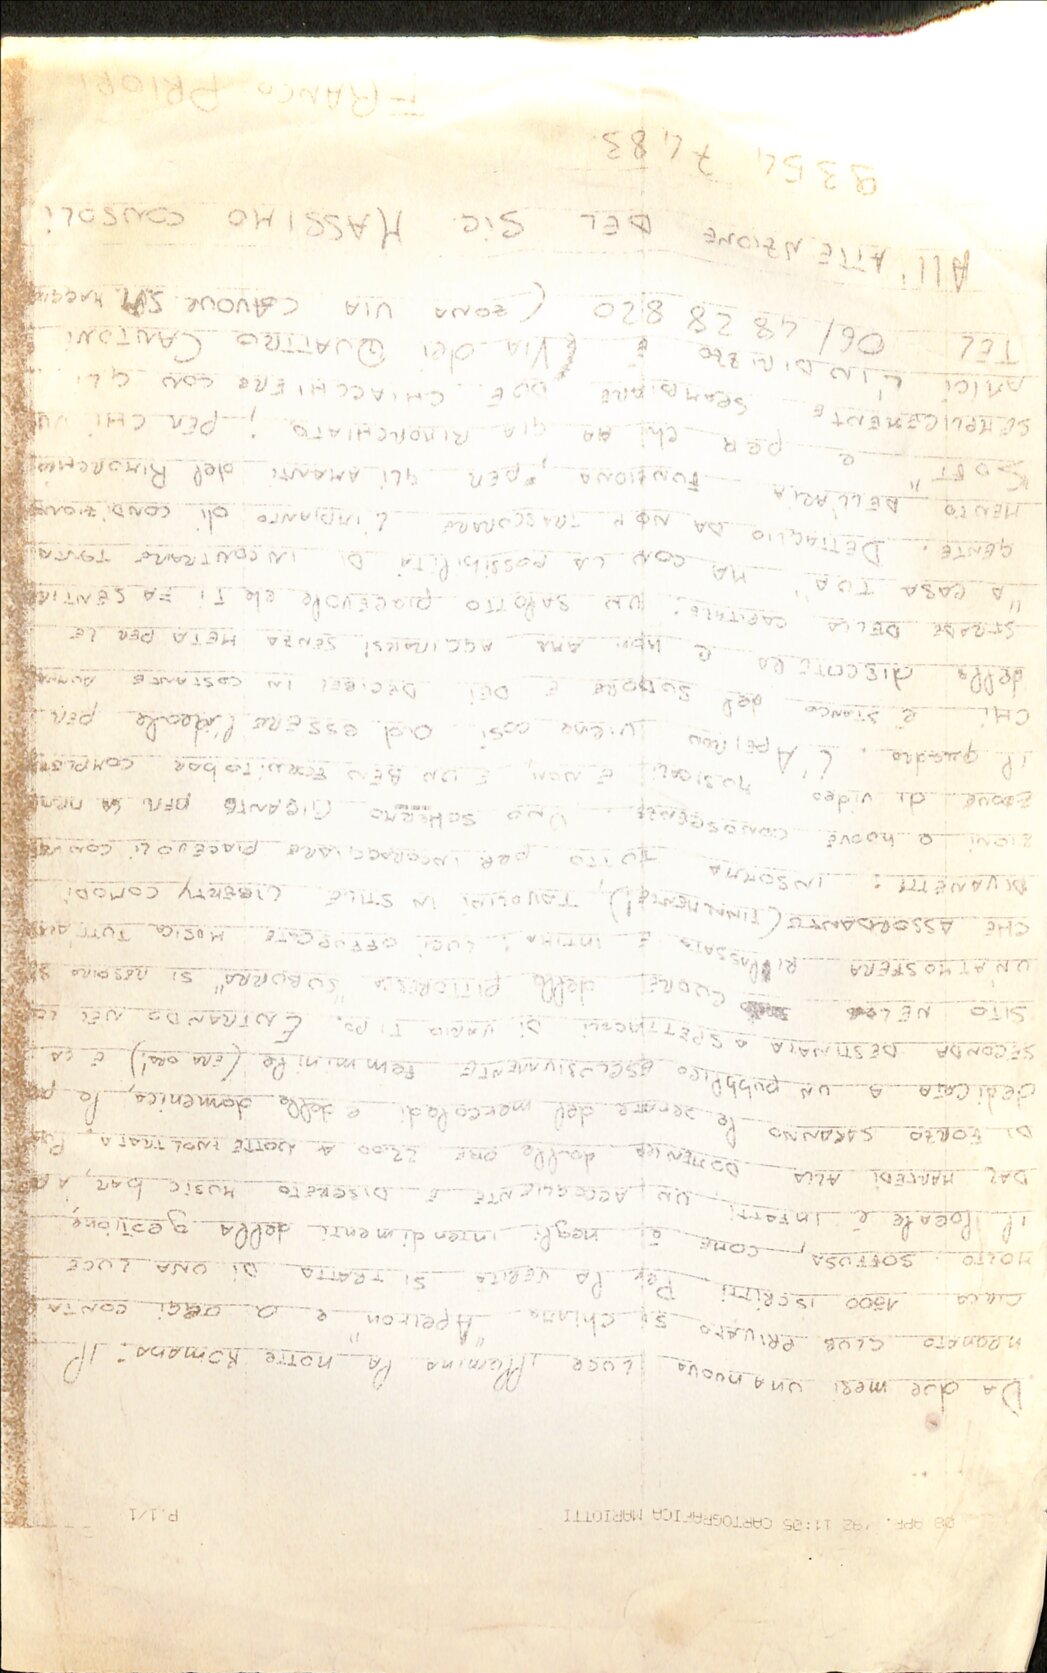 08 APR. '92 11:05 CARTOGRAFICA MARIOTTI P.1/1
DA due mesi UNA NUOVA LUCE illumina la NOTTE ROMANA: Il
NEONATO CLUB PRIVATO si chiama "Apeiron" e A OGGI CONTA
CIRCA 1500 ISCRITTI. Per la VERITÀ SI TRATTA DI UNA LUCE
MOLTO SOFFUSA, COME È negli intendimenti della gestione,
il locale è INFATTI UN ACCOGLIENTE E DISCRETO MUSIC bar,
DAL MARTEDÌ ALLA DOMENICA dalle ORE 22.00 A NOTTE INOLTRATA.
DI FORZO SARANNO le serate del mercoledì e della domenica, la
dedicATA A UN pubblico ESCLUSIVAMENTE femminile (ERA ORA!) E LA
SECONDA DESTINATA A SPETTACOLI DI VARIO TIPO. ENTRANDO NEL
SITO NEL CUORE della PITTORESCA "SUBURRA" SI RESPIRA
UN ATMOSFERA RILASSATA E INTIMA: LUCI OFFUSCATE MUSICA TUTT'ALTRO
CHE ASSORDANTE (FINALMENTE!), TAVOLINI IN STILE LIBERTY COMODI
DIVANETTI: INSOMMA TUTTO PER INCORAGGIARE PIACEVOLI
ZIONI O NUOVE CONOSCENZE. UNO SCHERMO GIGANTE PER LA
ZIONE di video MUSICALI E NON, E UN BEN FORNITO bar COMPLETANO
il quadro. L'Apeiron VIENE COSÌ Ad ESSERE l'ideale PER
CHI È STANCO del SUDORE E DEI DECIBEL IN COSTANTE
della DISCOTECA E NON AMA AGGIRARSI SENZA META PER LE
STRADE DELLA CAPITALE: UN SALOTTO piacevole che TI FA SENTIRE
"A CASA TUA", MA CON LA possibilità DI INCONTRARE TANTA
GENTE. DETTAGLIO DA NON TRASCURARE L'IMPIANTO di CONDIZIONA
MENTO DELL'ARIA FUNZIONA; PER GLI AMANTI del RIMORCHIO
"SOFT" e PER chi HA GIÀ RIMORCHIATO; PER CHI
SEMPLICEMENTE SCAMBIARE DUE CHIACCHIERE CON GLI
AMICI L'INDIRIZZO È (VIA dei QUATTRO CANTONI
TEL 06/ 48 28 820 (ZONA VIA CAVOUR
All'ATTENZIONE DEL SIG. MASSIMO CONSOLI
9354 7483
FRANCO PRIORI